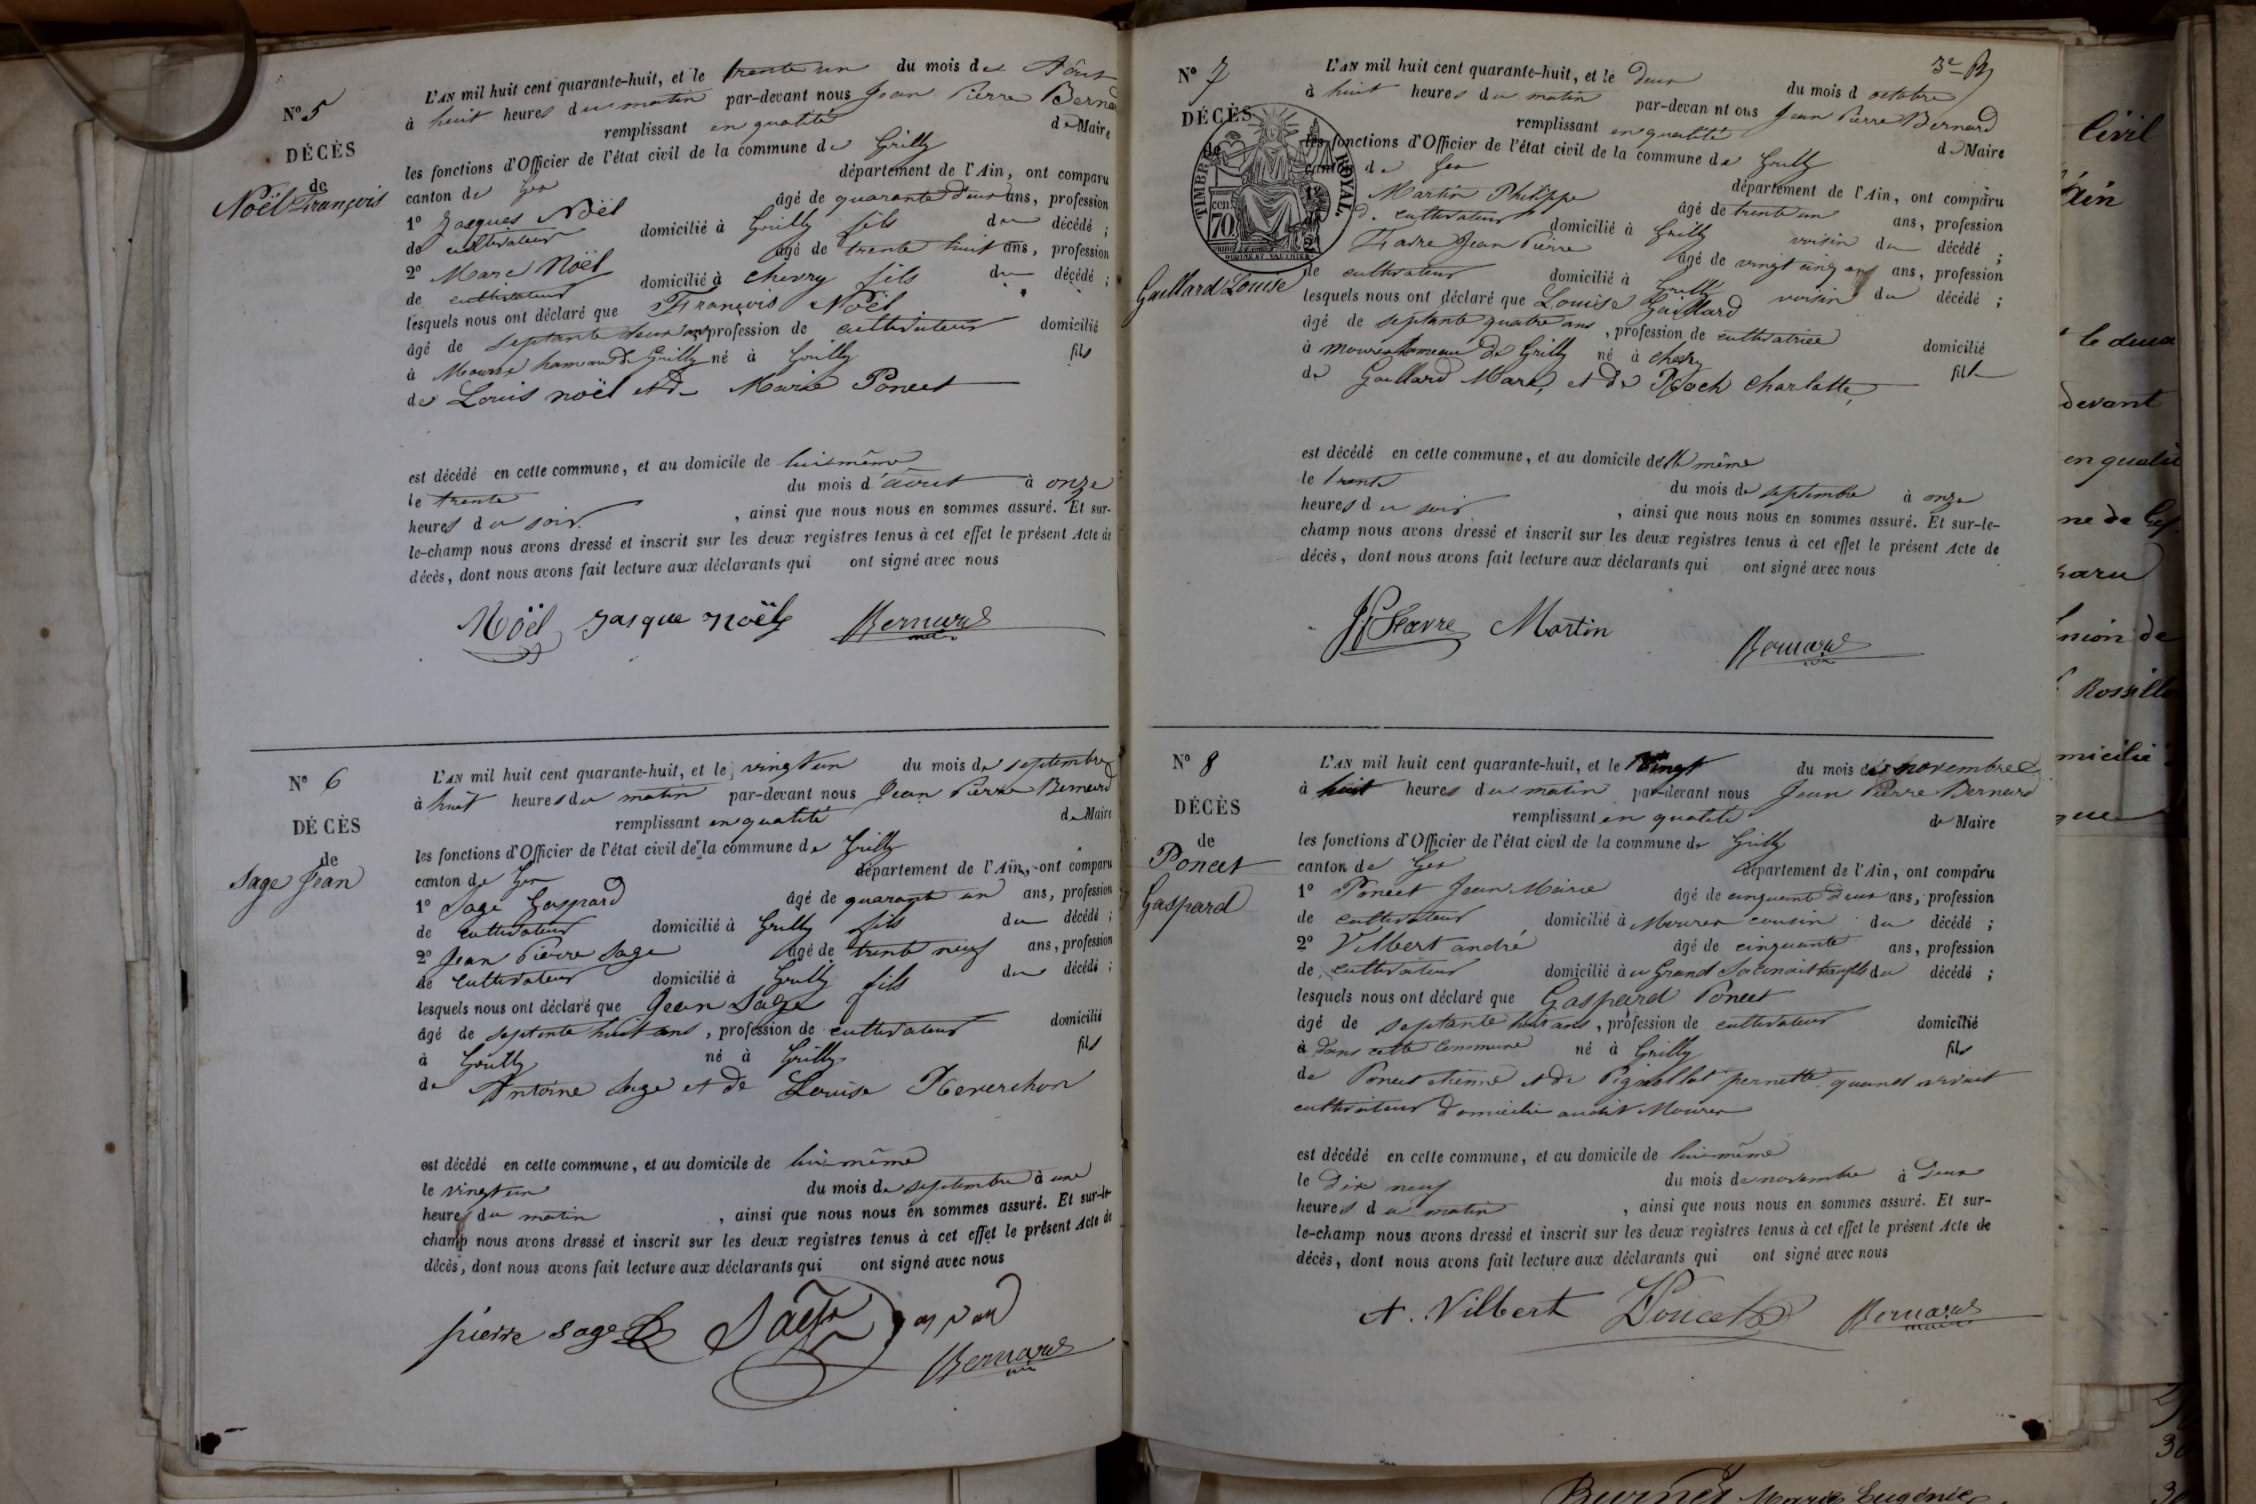 N° 5
DÉCÈS
de
Noël François
L'AN mil huit cent quarante-huit, et le trente un du mois de Aôut
à huit heures du matin par-devant nous Jean Pierre Bernard
remplissant en qualité de Maire
les fonctions d'Officier de l'état civil de la commune de Grilly
canton de Gex département de l'Ain, ont comparu
1° Jacques Noël âgé de quarante deux ans, profession
de cultivateur domicilié à Grilly fils du décédé ;
2° Marc Noël âgé de trente huit ans, profession
de cultivateur domicilié à chevry fils du décédé ;
lesquels nous ont déclaré que François Noël
âgé de septante deux ans profession de cultivateur domicilié
à Mourex hameau de Grilly né à Grilly fils
de Louis noël et de Marie Poncet
est décédé en cette commune, et au domicile de lui même
le trente du mois d'aôut à onze
heures du soir , ainsi que nous nous en sommes assuré. Et sur-
le-champ nous avons dressé et inscrit sur les deux registres tenus à cet effet le présent Acte de
décès, dont nous avons fait lecture aux déclarants qui ont signé avec nous
Noël Jasque Noël Bernard
maire
N° 6
DÉCÈS
de
Sage Jean
L'AN mil huit cent quarante-huit, et le vingt un du mois de septembre
à huit heures du matin par-devant nous Jean Pierre Bernard
remplissant en qualité de Maire
les fonctions d'Officier de l'état civil de la commune de Grilly
canton de Gex département de l'Ain, ont comparu
1° Sage Gaspard âgé de quarante un ans, profession
de cultivateur domicilié à Grilly fils du décédé ;
2° Jean Pierre Sage âgé de trente neuf ans, profession
de cultivateur domicilié à Grilly fils du décédé ;
lesquels nous ont déclaré que Jean Sage
âgé de septente huit ans , profession de cultivateur domicilié
à Grilly né à Grilly fils
de Antoine Sage et de Louise
est décédé en cette commune, et au domicile de lui même
le vingt un du mois de septembre à une
heures du matin , ainsi que nous nous en sommes assuré. Et sur-le-
champ nous avons dressé et inscrit sur les deux registres tenus à cet effet le présent Acte de
décès, dont nous avons fait lecture aux déclarants qui ont signé avec nous
pierre sage Sage gaspard
Bernard
N° 7
DÉCÈS
de
Gaillard Louise
TIMBRE ROYAL
cen.
70
3e
L'AN mil huit cent quarante-huit, et le deux du mois d octobre
à huit heures du matin par-devan nt ous Jean Pierre Bernard
remplissant en qualité de Maire
les fonctions d'Officier de l'état civil de la commune de Grilly
canton de Gex département de l'Ain, ont comparu
Martin Philippe âgé de trente un ans, profession
d. cultivateur domicilié à Grilly voisin du décédé ;
Favre Jean Pierre âgé de vingt cinq ans ans, profession
de cultivateur domicilié à Grilly voisin du décédé ;
lesquels nous ont déclaré que Louise Gaillard
âgé de septante quatre ans , profession de cultivatrice domicilié
à mourex hameau de Grilly né à chevry fille
de Gaillard Marc, et de Roch charlotte,
est décédé en cette commune, et au domicile de elle même
le trente du mois de septembre à onze
heures du soir , ainsi que nous nous en sommes assuré. Et sur-le-
champ nous avons dressé et inscrit sur les deux registres tenus à cet effet le présent Acte de
décès, dont nous avons fait lecture aux déclarants qui ont signé avec nous
Martin
Bernard
N° 8
DÉCÈS
de
Poncet
Gaspard
L'AN mil huit cent quarante-huit, et le Vingt du mois de novembre
à huit heures du matin par-devant nous Jean Pierre Bernard
remplissant en qualité de Maire
les fonctions d'Officier de l'état civil de la commune de Grilly
canton de Gex département de l'Ain, ont comparu
1° Poncet Jean Marie âgé de cinquante deux ans, profession
de cultivateur domicilié à Mourex cousin du décédé ;
2° Vilbert andré âgé de cinquante ans, profession
de cultivateur domicilié à au Grand Saconnex du décédé ;
lesquels nous ont déclaré que Gaspard Poncet
âgé de septante huit ans , profession de cultivateur domicilié
à dans cette Commune né à Grilly fils
de Poncet etienne et de pernette quand vivait
cultivateur domicilié audit Mourex
est décédé en cette commune, et au domicile de lui même
le Dix neuf du mois de novembre à Deux
heures du matin , ainsi que nous nous en sommes assuré. Et sur-
le-champ nous avons dressé et inscrit sur les deux registres tenus à cet effet le présent Acte de
décès, dont nous avons fait lecture aux déclarants qui ont signé avec nous
A. Vilbert Poncet Bernard
maire
Civil
devant